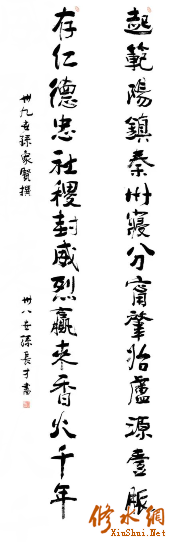 起範陽鎮秦州寢分甯肇始盧源壹脈
存仁德忠社稷封威烈贏來香火千年
卅九世孫家賢撰
卅八世孫長才書
修水網
XiuShui.Net